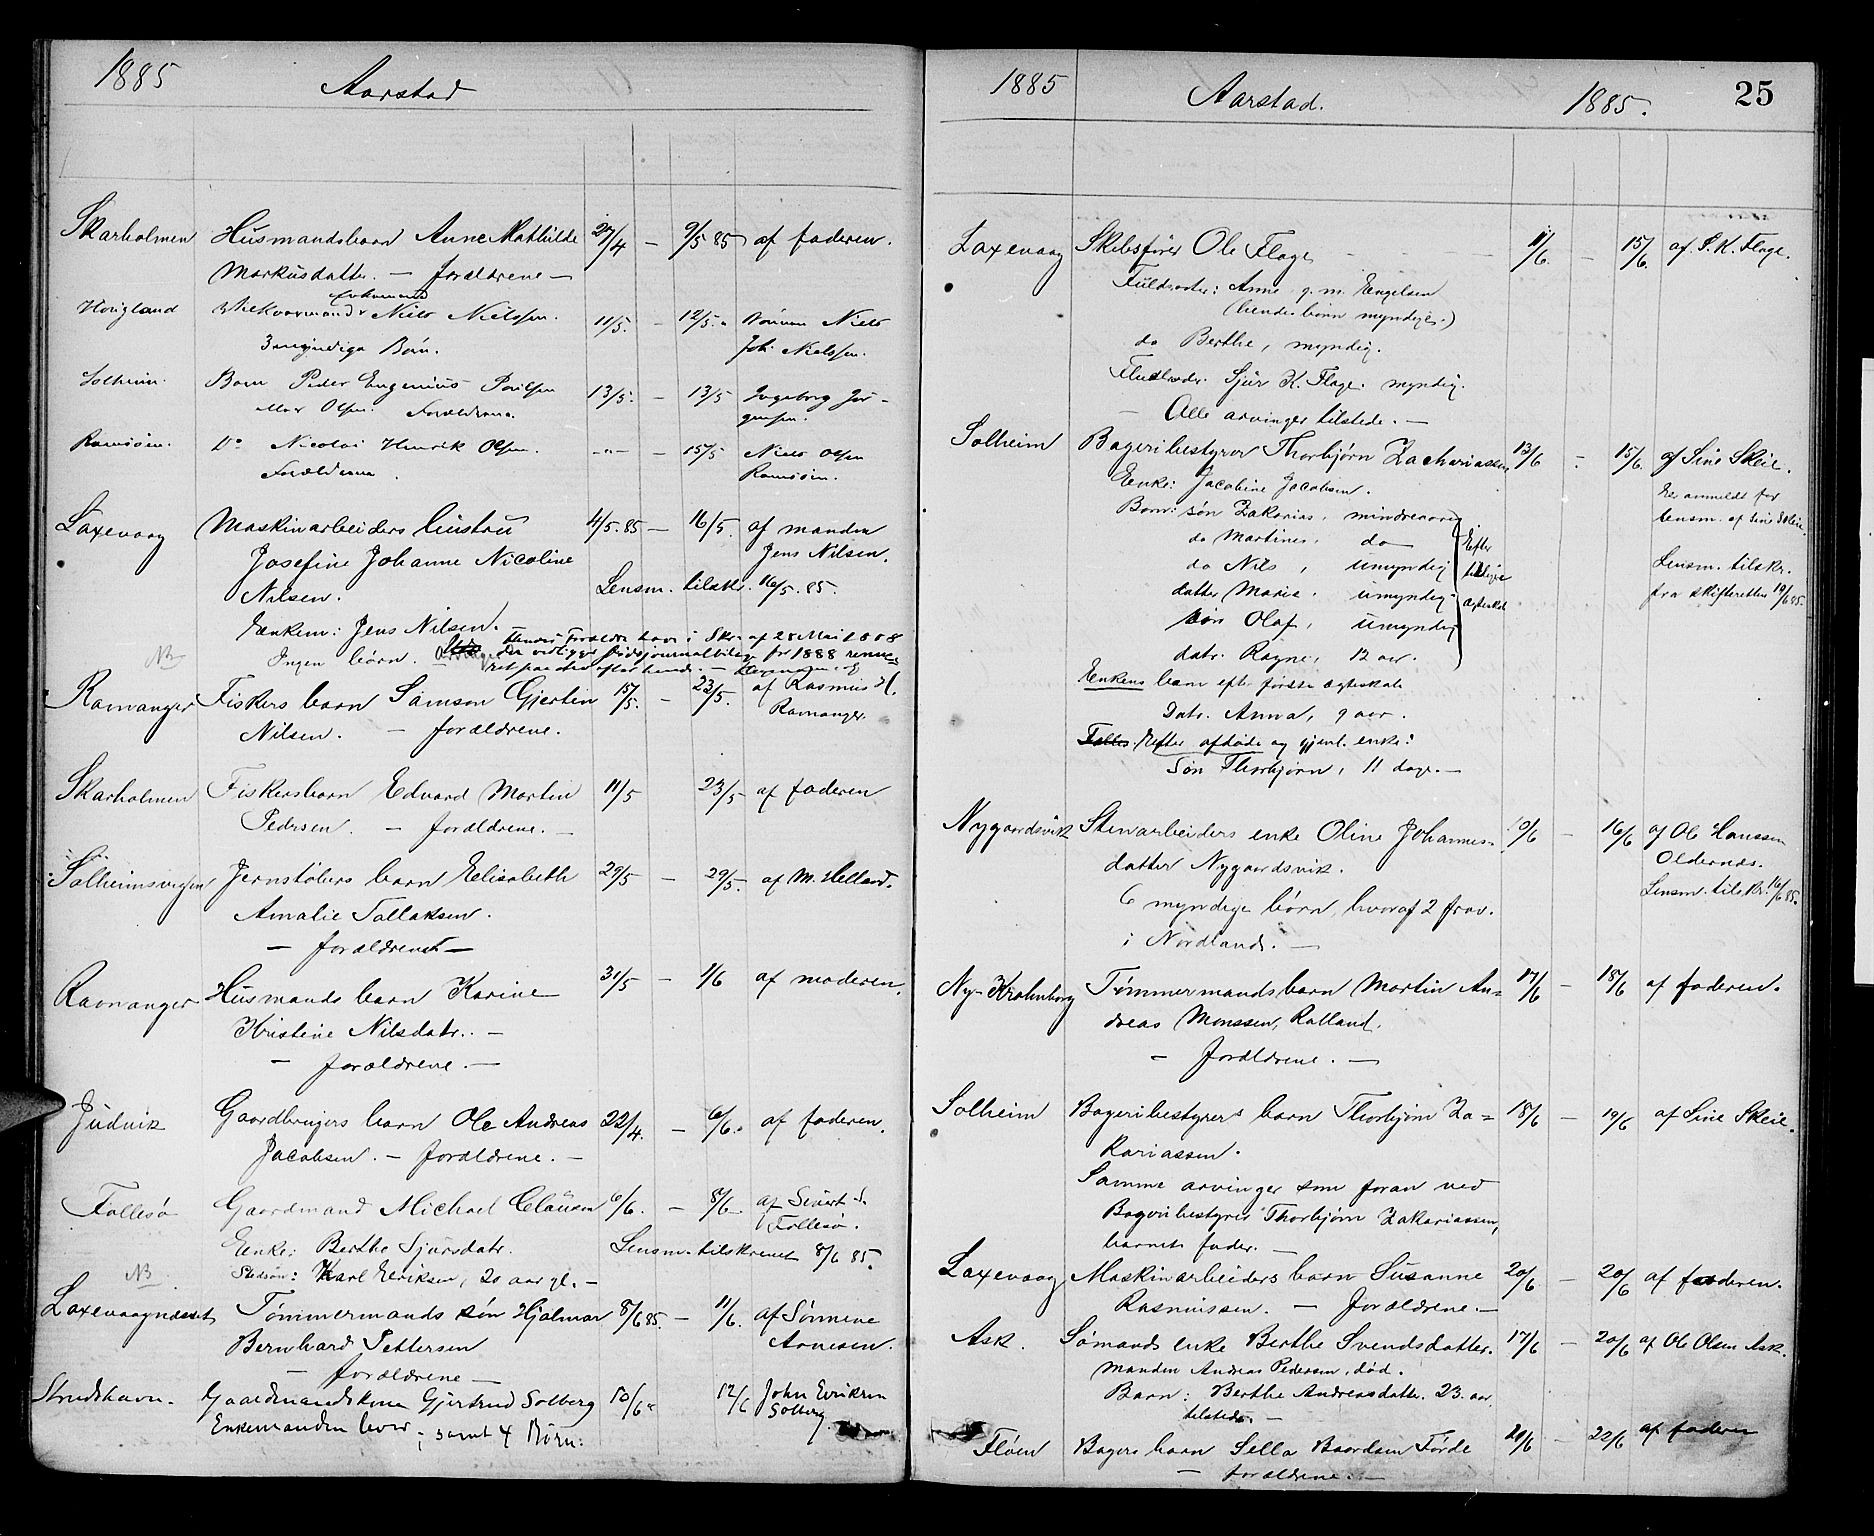 1885 Aarstad
Skarholmen Husmandsbarn Anne Mathilde 27/4 — 9/5 85 af faderen.
Markusdatter. — forældrene —
Hougland Niels Nielsen. 11/5. — 12/5. Sønnen Niels
3 myndige Børn. Joh. Nielssen.
Solheim. Barn Peder Engenius 13/5. — 13/5 Ingeborg Jør-
Olsen. Forældrene. gensen.
Ramsöen. Do Nicolai Henrik Olsen. -"- — 15/5 Niels Olsen
Forældrene. Ramsöen.
Laxevaag Maskinarbeiders hustru 4/5.85 — 16/5. af manden
Josefine Johanne Nicoline Jens Nilsen.
Nilsen. Lensm. tilskr. 16/5. 85.
Enkem: Jens Nilsen.
Ingen børn. Hendes Forældre have i Skr. af 28 Mai 1888
NB
Ramanger Fiskers barn Samson Gjertin 15/5. — 23/5. af Rasmus H.
Nilsen. — forældrene. Ramanger.
Skarholmen Fiskersbarn Edvard Martin 11/5 23/5 af faderen
Pedersen. — forældrene. —
Solheimsvigen Jernstøbers barn Elisabeth 29/5 — 29/5. af M. Helland.
Amalie Tollaksen.
— forældrene —
Ravnanger Husmands barn Karine 31/5 — 1/6 af moderen.
Kristine Nilsdatr. —
— forældrene. —
Judvik Gaardbrugers barn Ole Andreas 22/4. — 6/6. af faderen.
Jacobsen. — forældrene. —
Follesø Gaardmand Michael Clausen 6/6. — 8/6 af Sivert S.
Follesø.
Enke: Berthe Sjursdatr. Lensm. tilskrevet 8/6 85.
NB Stedsøn: Karl Eriksen, 20 aar gl. —
Laxevaagneset Tømmermands søn Hjalmar 8/6 85. — 11/6. af Sønnene
Bernhard Pettersen Arnesen.
— forældrene —
Strudshavn. Gaardmandskone Gjertrud Solberg 10/6 12/6 John Eriksen
Enkemanden lever; samt 4 Børn. Solberg
1885 Aarstad. 1885. 25
Laxevaag Skibsfører Ole Flage 11/6. — 15/6. af S. K. Flage.
Fuldsøster: Anne, g. m. Engelsen
(hendes børn myndige.)
do Berthe, myndig.
Fuldbroder. Sjur K. Flage. myndig.
— Alle arvinger tilstede. —
Solheim Bageribestyrer Thorbjørn Zachariassen 13/6 — 15/6. af Sine Skeie.
Enke: Jacobine Jacobsen. Er anmeldt for
Børn: søn Zakarias, mindreaarig lensm. af Sine Skeie.
do Martines. do Efter
do Nils, umyndig tidligere Lensm. tilskr.
datter Marie, umyndig ægteskab fra skifteretten 19/6 85.
søn Olaf, umyndig
datr. Ragne, 12 aar.
Enkens barn efter første ægteskab
Datr. Anna, 9 aar.
Fælles. Efter afdøde og gjenl. enke:
Søn Thorbjørn, 11 dage. —
Nygaardsvik Stenarbeiders enke Oline Johannes- 9/6 — 16/6 af Ole Hanssen
datter Nygaardsvik. Oldernes.
6 myndige børn, hvoraf 2 frav. Lensm. tilskr. 16/6 85.
i Nordland. —
Ny-Krohnborg Tømmermands barn Martin An- 17/6 — 18/6 af faderen.
dreas Monssen, Ralland.
— forældrene. —
Solheim Bageribestyrers barn Thorbjørn Za- 18/6 — 19/6 af Sine Skeie.
kariassen.
Samme arvinger som foran ved
Bageribestyrer Thorbjørn Zakariassen,
barnets fader. —
Laxevaag Maskinarbeiders barn Susanne 20/6 — 20/6 af faderen.
Rasmussen. — forældrene. —
Ask. Sømands enke Berthe Svendsdatter. 17/6 — 20/6 af Ole Olsen Ask.
Manden Andreas Pedersen, død.
Barn: Berthe Andreasdatter. 23 aar
tilstede. —
Fløen Bagers barn Sella Baardsen Førde 20/6 — 22/6 af faderen
— forældrene. —